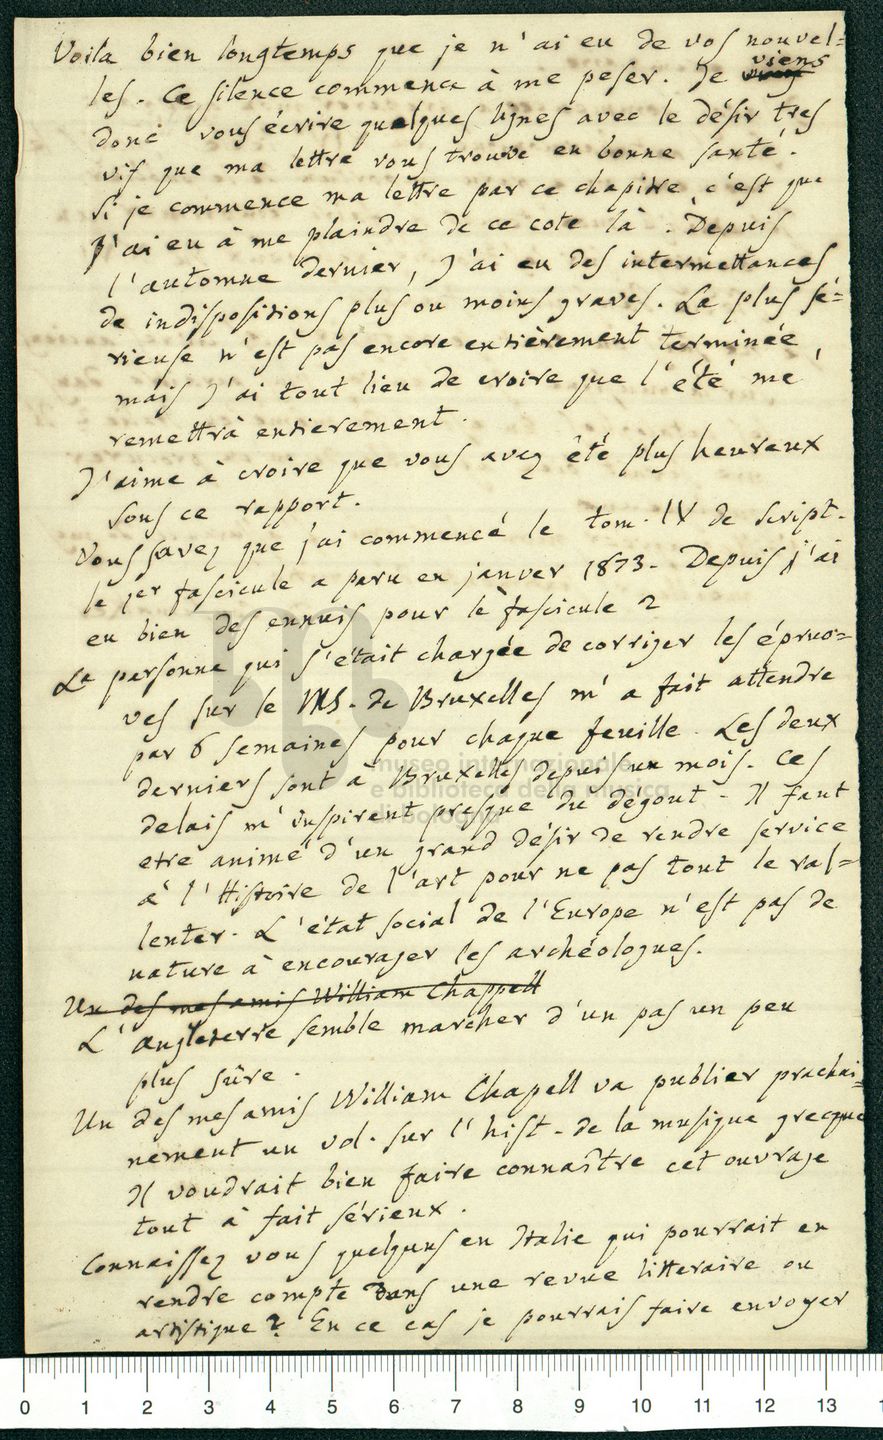 Voila bien longtemps que je n'ai eu de vos nouvel=
les. Ce silence commence à me peser. Je viens
donc vous écrire quelques lignes avec le désir tres
vif que ma lettre vous trouve en bonne santé.
Si je commence ma lettre par ce chapitre, c'est que
j'ai eu à me plaindre de ce cote là. Depuis
l'automne dernier, j'ai eu des intermettances
de indispositions plus ou moins graves. La plus sé=
rieuse n'est pas encore entièrement terminée,
mais j'ai tout lieu de croire que l'été me
remettrà entierement.
J'aime à croire que vous avez êté plus heureux
sous ce rapport.
Vous savez que j'ai commencé le tom. IV de script.
le 1er fascicule a paru en janver 1873. Depuis j'ai
eu bien des ennuis pour le fascicule 2
La personne qui s'était chargée de corriger les épruo=
ves sur le MS. de Bruxelles m'a fait attendre
par 6 semaines pour chaque feuille. Les deux
derniers sont à Bruxelles depuis un mois. Ces
delais m'inspirent presque du dégout. Il faut
etre animé d'un grand désir de rendre service
a l'Histoire de l'art pour ne pas tout le ral=
lenter. L'état social de l'Europe n'est pas de
nature à encourager les archéologues.
Un des mes amis William Chappell
L'angleterre semble marcher d'un pas un peu
plus sûre.
Un des mes amis William Chapell va publier prachai=
nement un vol. sur l'hist. de la musique grecque
Il voudrait bien faire connaître cet ouvrage
tout à fait sérieux.
Connaissez vous quelquns en Italie qui pourrait en
rendre compte dans une revue litteraire ou
artistique? En ce cas je pourrais faire envoyer
museo internazionale
e biblioteca della musica
di bologna
0 1 2 3 4 5 6 7 8 9 10 11 12 13